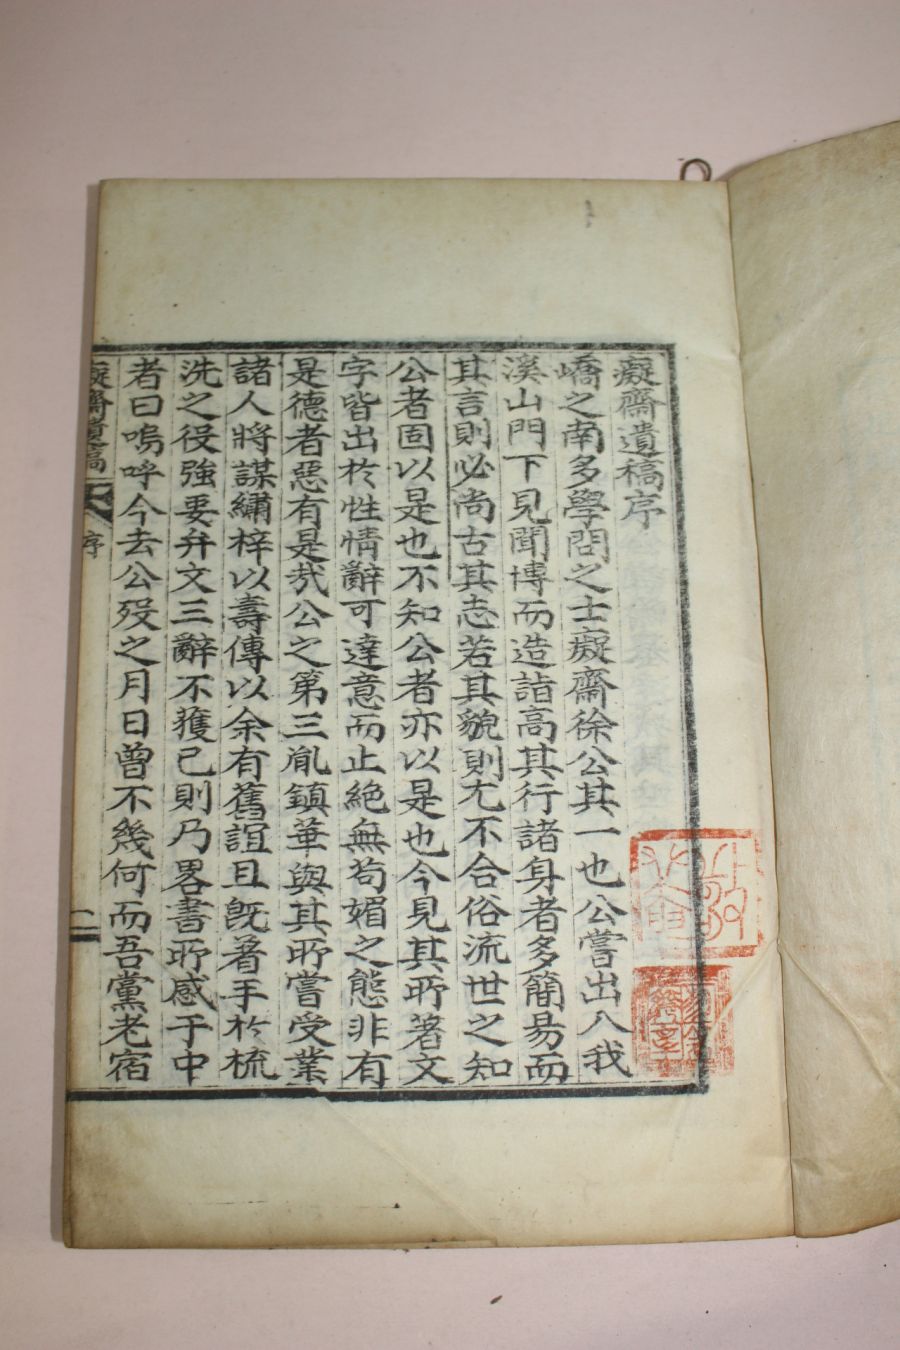 癡齋遺稿序
嶠之南多學問之士癡齋徐公其一也公嘗出入我
溪山門下見聞博而造詣高其行諸身者多簡易而
其言則必尚古其志若其貌則尤不合俗流世之知
公者固以是也不知公者亦以是也今見其所著文
字皆出於性情辭可達意而止絶無苟媚之態非有
是德者惡有是㢤公之第三胤鎮華與其所嘗受業
諸人將謀繡梓以壽傳以余有舊誼且旣著手於梳
洗之役強要弁文三辭不獲已則乃畧書所感于中
者曰嗚呼今去公歿之月日曾不幾何而吾黨老宿
癡齋遺稿
序
一